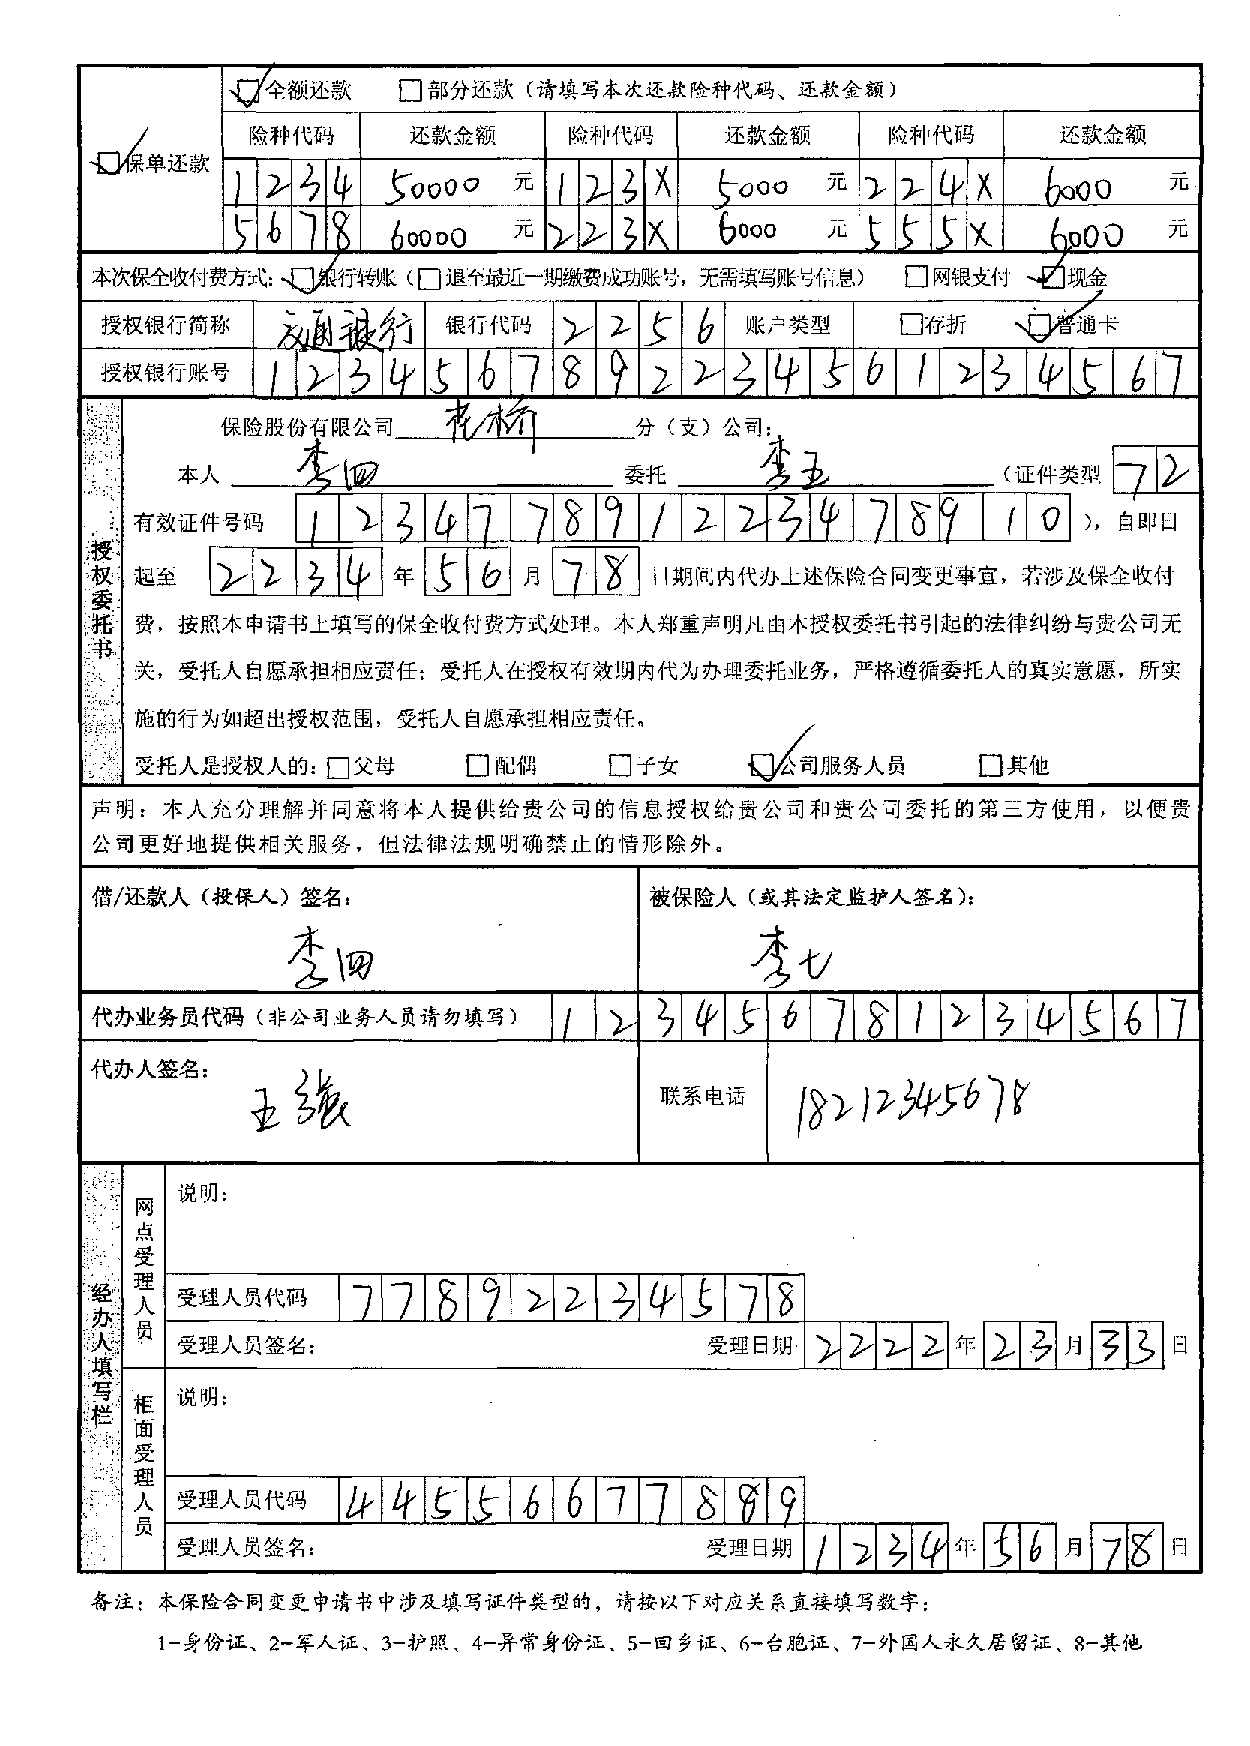 ☑全额还款 □部分还款（请填写本次还款险种代码、还款金额）
☑保单还款
险种代码 还款金额 险种代码 还款金额 险种代码 还款金额
1234 50000 元 123X 5000 元 224X 6000 元
5678 60000 元 223X 6000 元 555X 6000 元
本次保全收付费方式：☑银行转账（□退至最近一期缴费成功账号，无需填写账号信息） □网银支付 ☑现金
授权银行简称 交通银行 银行代码 2256 账户类型 □存折 ☑普通卡
授权银行账号 1234567892234561234567
授权委托书
保险股份有限公司 分（支）公司：
本人 李四 委托 李五 （证件类型 72
有效证件号码 123477891223478910 ），自即日
起至 2234 年 56 月 78 日期间内代办上述保险合同变更事宜，若涉及保全收付
费，按照本申请书上填写的保全收付费方式处理。本人郑重声明凡由本授权委托书引起的法律纠纷与贵公司无
关，受托人自愿承担相应责任；受托人在授权有效期内代为办理委托业务，严格遵循委托人的真实意愿，所实
施的行为如超出授权范围，受托人自愿承担相应责任。
受托人是授权人的：□父母 □配偶 □子女 ☑公司服务人员 □其他
声明：本人充分理解并同意将本人提供给贵公司的信息授权给贵公司和贵公司委托的第三方使用，以便贵
公司更好地提供相关服务，但法律法规明确禁止的情形除外。
借/还款人（投保人）签名： 被保险人（或其法定监护人签名）：
李四 李七
代办业务员代码（非公司业务人员请勿填写） 123456781234567
代办人签名： 王强 联系电话 18212345678
经办人填写栏
网点受理人员
说明：
受理人员代码 77892234578
受理人员签名： 受理日期 2222 年 23 月 33 日
柜面受理人员
说明：
受理人员代码 44556677889
受理人员签名： 受理日期 1234 年 56 月 78 日
备注：本保险合同变更申请书中涉及填写证件类型的，请按以下对应关系直接填写数字：
1-身份证、2-军人证、3-护照、4-异常身份证、5-回乡证、6-台胞证、7-外国人永久居留证、8-其他